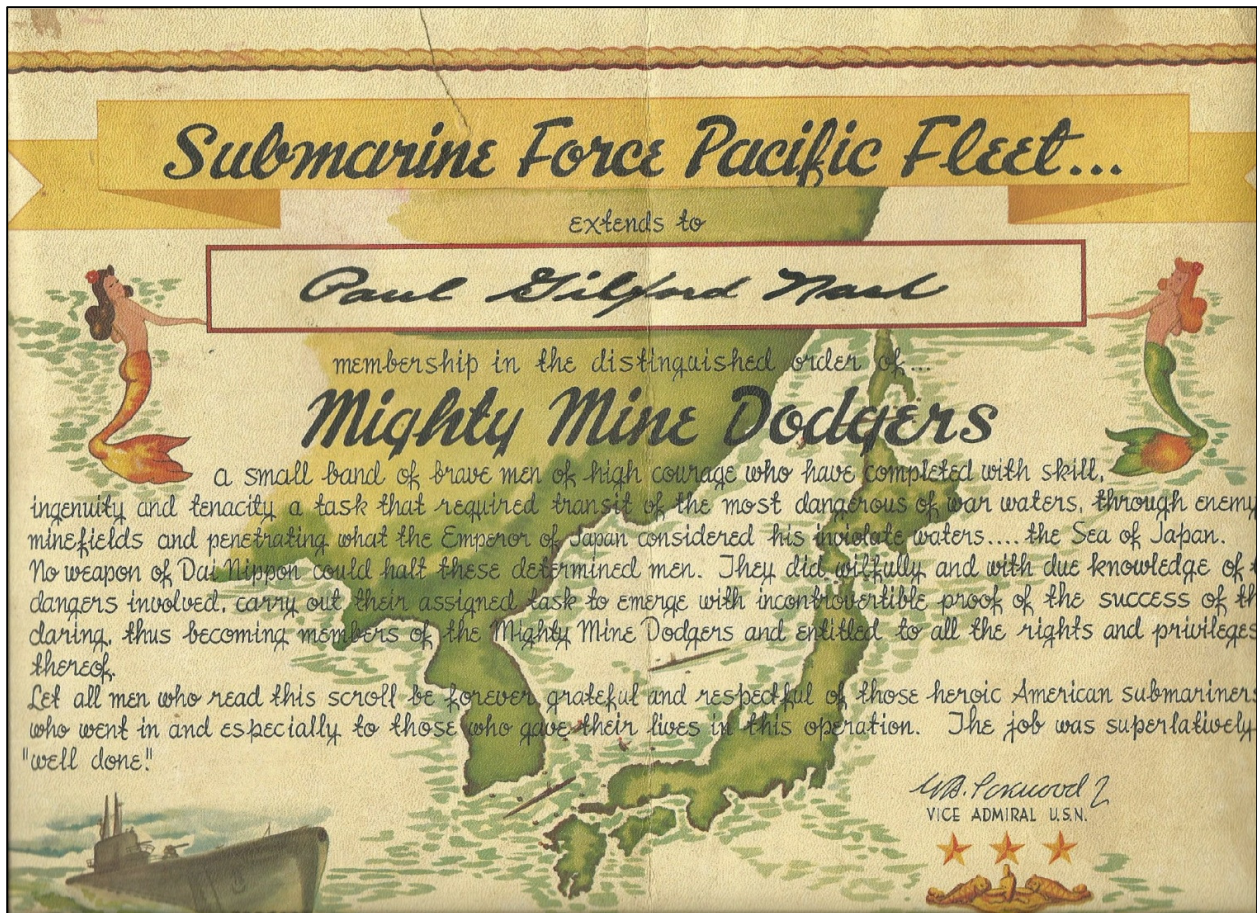 Submarine Force Pacific Fleet...
extends to
Paul Gilford Nash
membership in the distinguished order of...
Mighty Mine Dodgers
a small band of brave men of high courage who have completed with skill,
ingenuity and tenacity a task that required transit of the most dangerous of war waters, through enemy
minefields and penetrating what the Emperor of Japan considered his inviolate waters.... the Sea of Japan.
No weapon of Dai Nippon could halt these determined men. They did wilfully and with due knowledge of
dangers involved, carry out their assigned task to emerge with incontrovertible proof of the success of th
daring, thus becoming members of the Mighty Mine Dodgers and entitled to all the rights and privileges
thereof.
Let all men who read this scroll be forever grateful and respectful of those heroic American submariners
who went in and especially to those who gave their lives in this operation. The job was superlatively
"well done."
VICE ADMIRAL U.S.N.